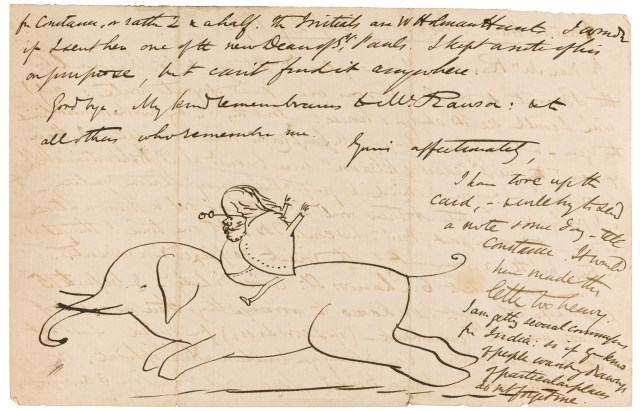 for Constance, or rather 2 & a half. The Initials are W Holman Hunts. I wonder
if I sent her one of the new Dean of St. Pauls. I kept a note of his
on purpose, but can't find it anywhere.
Goodbye. My kind remembrances to Mr. Rawson: & to
all others who remember me.
Yours affectionately,
I have tore up the
card, - & will try to send
a note some day - to
Constance. It would
have made this
letter too heavy.
I am getting several commissions
for India: so if you know
of people wanting drawings
of particular places
do not forget me.